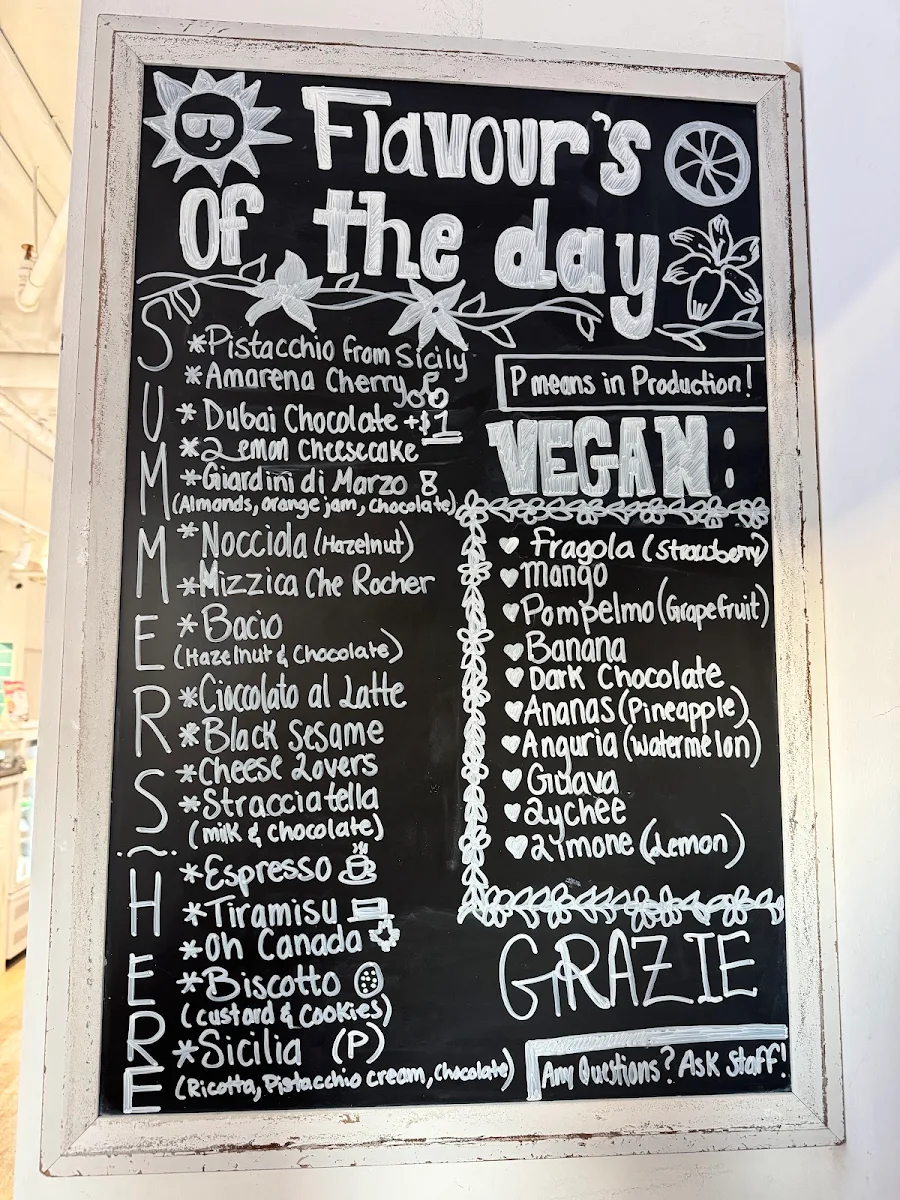 Flavour's
Of the day
SUMMERS HERE
*Pistacchio from Sicily
*Amarena Cherry
*Dubai Chocolate +$1
*Lemon Cheesecake
*Giardini di Marzo 8
(Almonds, orange jam, chocolate)
*Nocciola (Hazelnut)
*Mizzica Che Rocher
*Bacio
(Hazelnut & Chocolate)
*Cioccolato al Latte
*Black Sesame
*Cheese Lovers
*Stracciatella
(milk & chocolate)
*Espresso
*Tiramisu
*Oh Canada
*Biscotto
(custard & Cookies)
*Sicilia (P)
(Ricotta, Pistacchio cream, Chocolate)
P means in Production!
VEGAN:
Fragola (strawberry)
Mango
Pompelmo (Grapefruit)
Banana
Dark Chocolate
Ananas (Pineapple)
Anguria (watermelon)
Guava
Lychee
Limone (Lemon)
GRAZIE
Any Questions? Ask Staff!